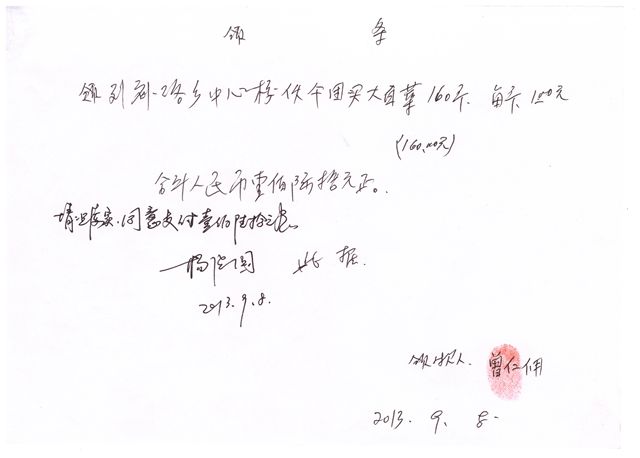 领 条
领到 乡中心校伙 买大白菜160斤、每斤1.00元
(160.00元)
合计人民币壹佰陆拾元正。
情况属实,同意支付壹佰陆拾元。
此据.
2013.9.8.
领款人. 曾仁佣
2013. 9. 8.